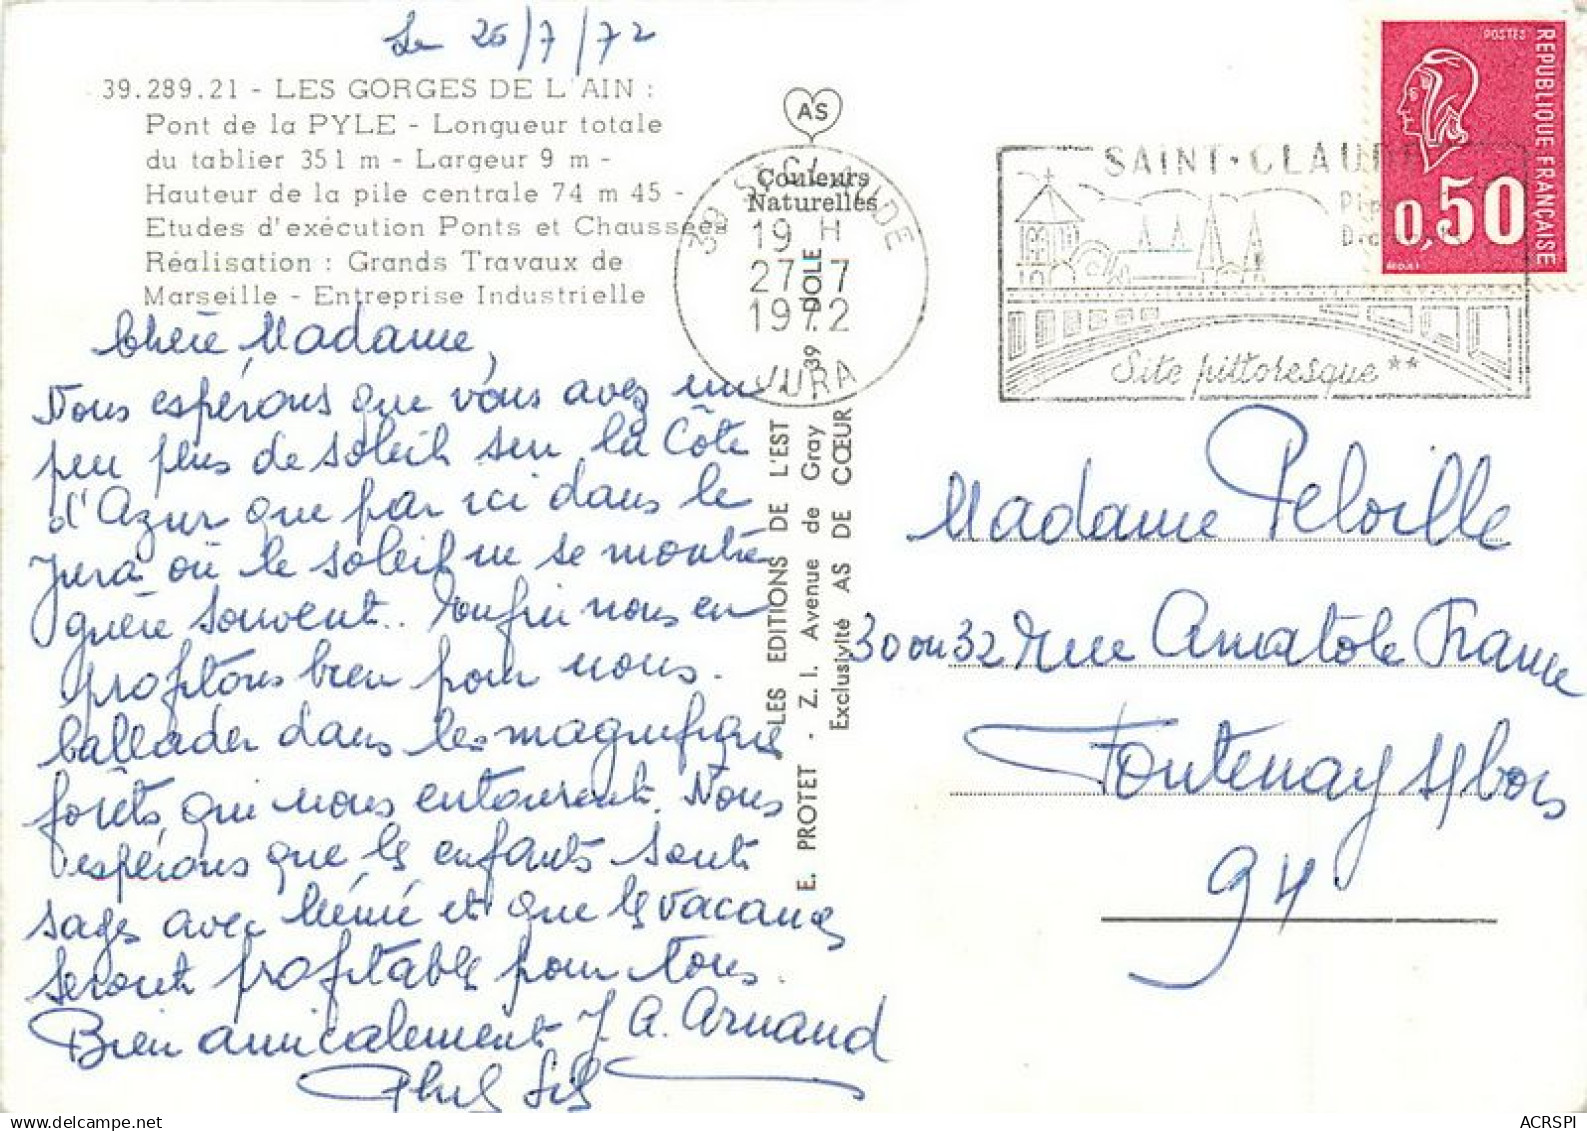 Le 26/7/72
39.289.21 - LES GORGES DE L'AIN :
Pont de la PYLE - Longueur totale
du tablier 351 m - Largeur 9 m -
Hauteur de la pile centrale 74 m 45 -
Etudes d'exécution Ponts et Chaussées
Réalisation : Grands Travaux de
Marseille - Entreprise Industrielle
Chère Madame,
Nous espérons que vous avez un
peu plus de soleil sur la Côte
d'Azur que par ici dans le
Jura où le soleil ne se montre
guère souvent.. Enfin nous en
profitons bien pour nous.
ballader dans les magnifiques
forêts qui nous entourent. Nous
espérons que les enfants sont
sages avec mémé et que les vacances
seront profitables pour tous.
Bien amicalement J. A. Arnaud
AS
Couleurs
Naturelles
39 ST CLAUDE
19 H
27-7
1972
JURA
39 DOLE
E. PROTET - LES EDITIONS DE L'EST
Z. I. Avenue de Gray
Exclusivité AS DE CŒUR
SAINT-CLAUDE
Site pittoresque **
POSTES
REPUBLIQUE FRANÇAISE
0,50
Madame Peloille
30 ou 32 rue Anatole France
Fontenay s/bois
94
ACRSPI